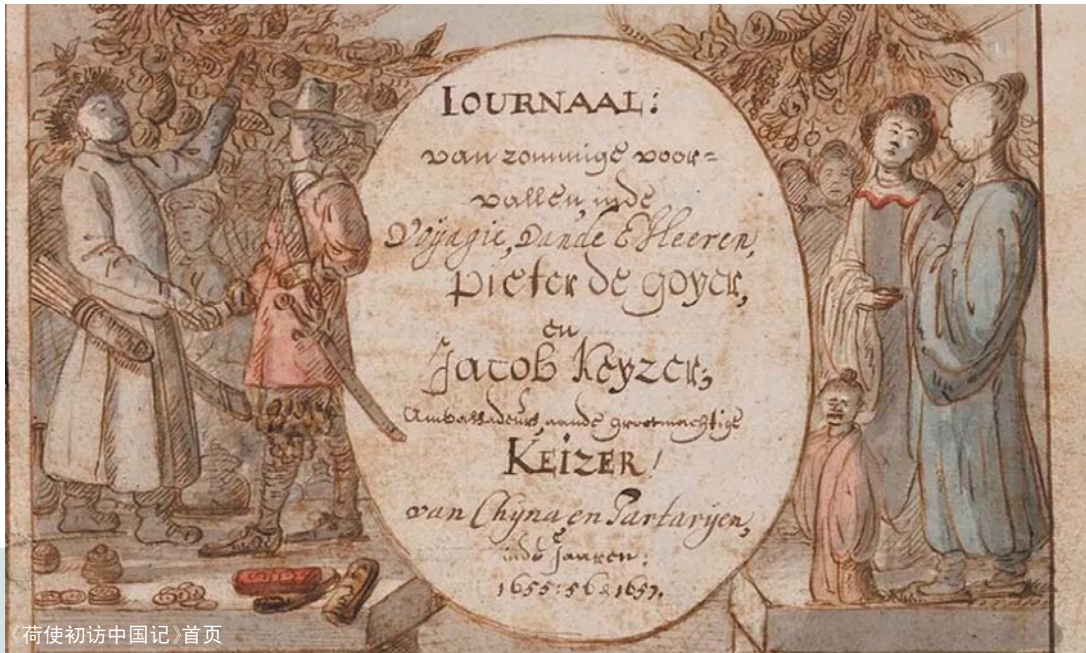 IOURNAAL:
van zommige voor=
vallen, inde
Voyagie, vande E Heeren,
Pieter de goyer,
en
Jacob Keyzer,
Ambassadeurs, aande grootmachtige
KEIZER!
van Chyna en Tartaryen,
inde Jaaren:
1655:56 & 1657.
《荷使初访中国记》首页